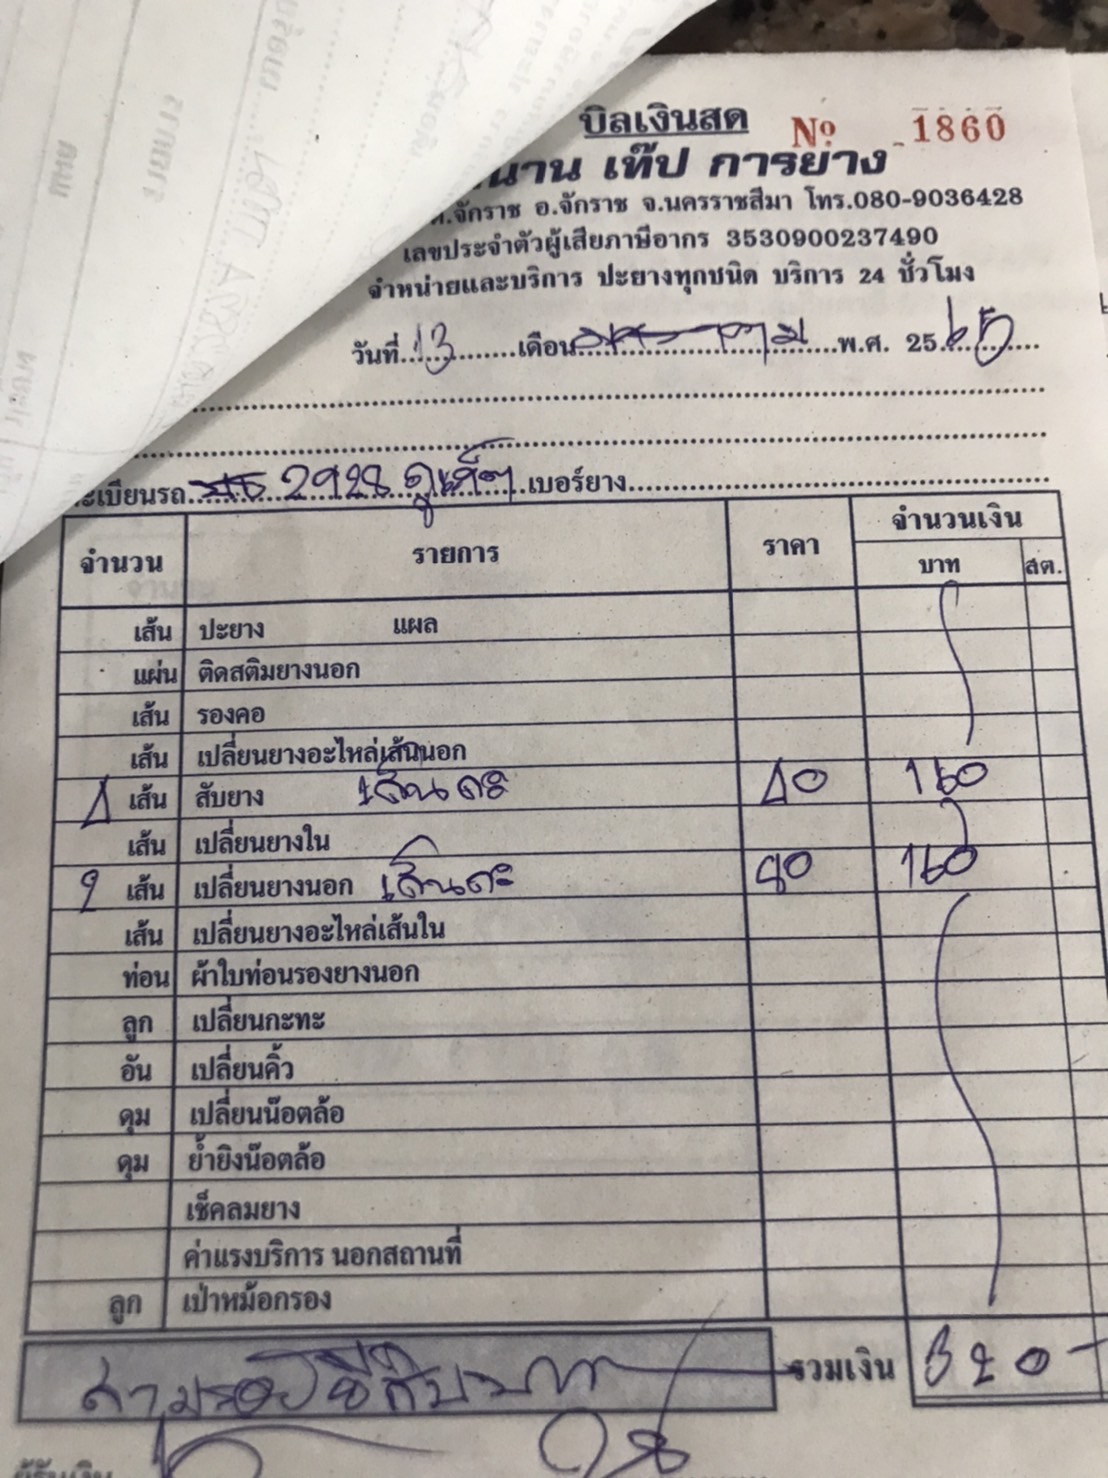 บิลเงินสด
№ 1860
นาน เท๊ป การยาง
ต.จักราช อ.จักราช จ.นครราชสีมา โทร.080-9036428
เลขประจำตัวผู้เสียภาษีอากร 3530900237490
จำหน่ายและบริการ ปะยางทุกชนิด บริการ 24 ชั่วโมง
วันที่ 13 เดือน พ.ศ. 2565
ทะเบียนรถ 2928 เบอร์ยาง
จำนวน รายการ ราคา จำนวนเงิน
บาท สต.
เส้น ปะยาง แผล
แผ่น ติดสติมยางนอก
เส้น รองคอ
เส้น เปลี่ยนยางอะไหล่เส้นนอก
4 เส้น สับยาง เส้นละ 40 160
เส้น เปลี่ยนยางใน
2 เส้น เปลี่ยนยางนอก เส้นละ 80 160
เส้น เปลี่ยนยางอะไหล่เส้นใน
ท่อน ผ้าใบท่อนรองยางนอก
ลูก เปลี่ยนกะทะ
อัน เปลี่ยนคิ้ว
ดุม เปลี่ยนน๊อตล้อ
ดุม ย้ำยิงน๊อตล้อ
เช็คลมยาง
ค่าแรงบริการ นอกสถานที่
ลูก เป่าหม้อกรอง
สามร้อยยี่สิบบาท รวมเงิน 320-
ผู้รับเงิน